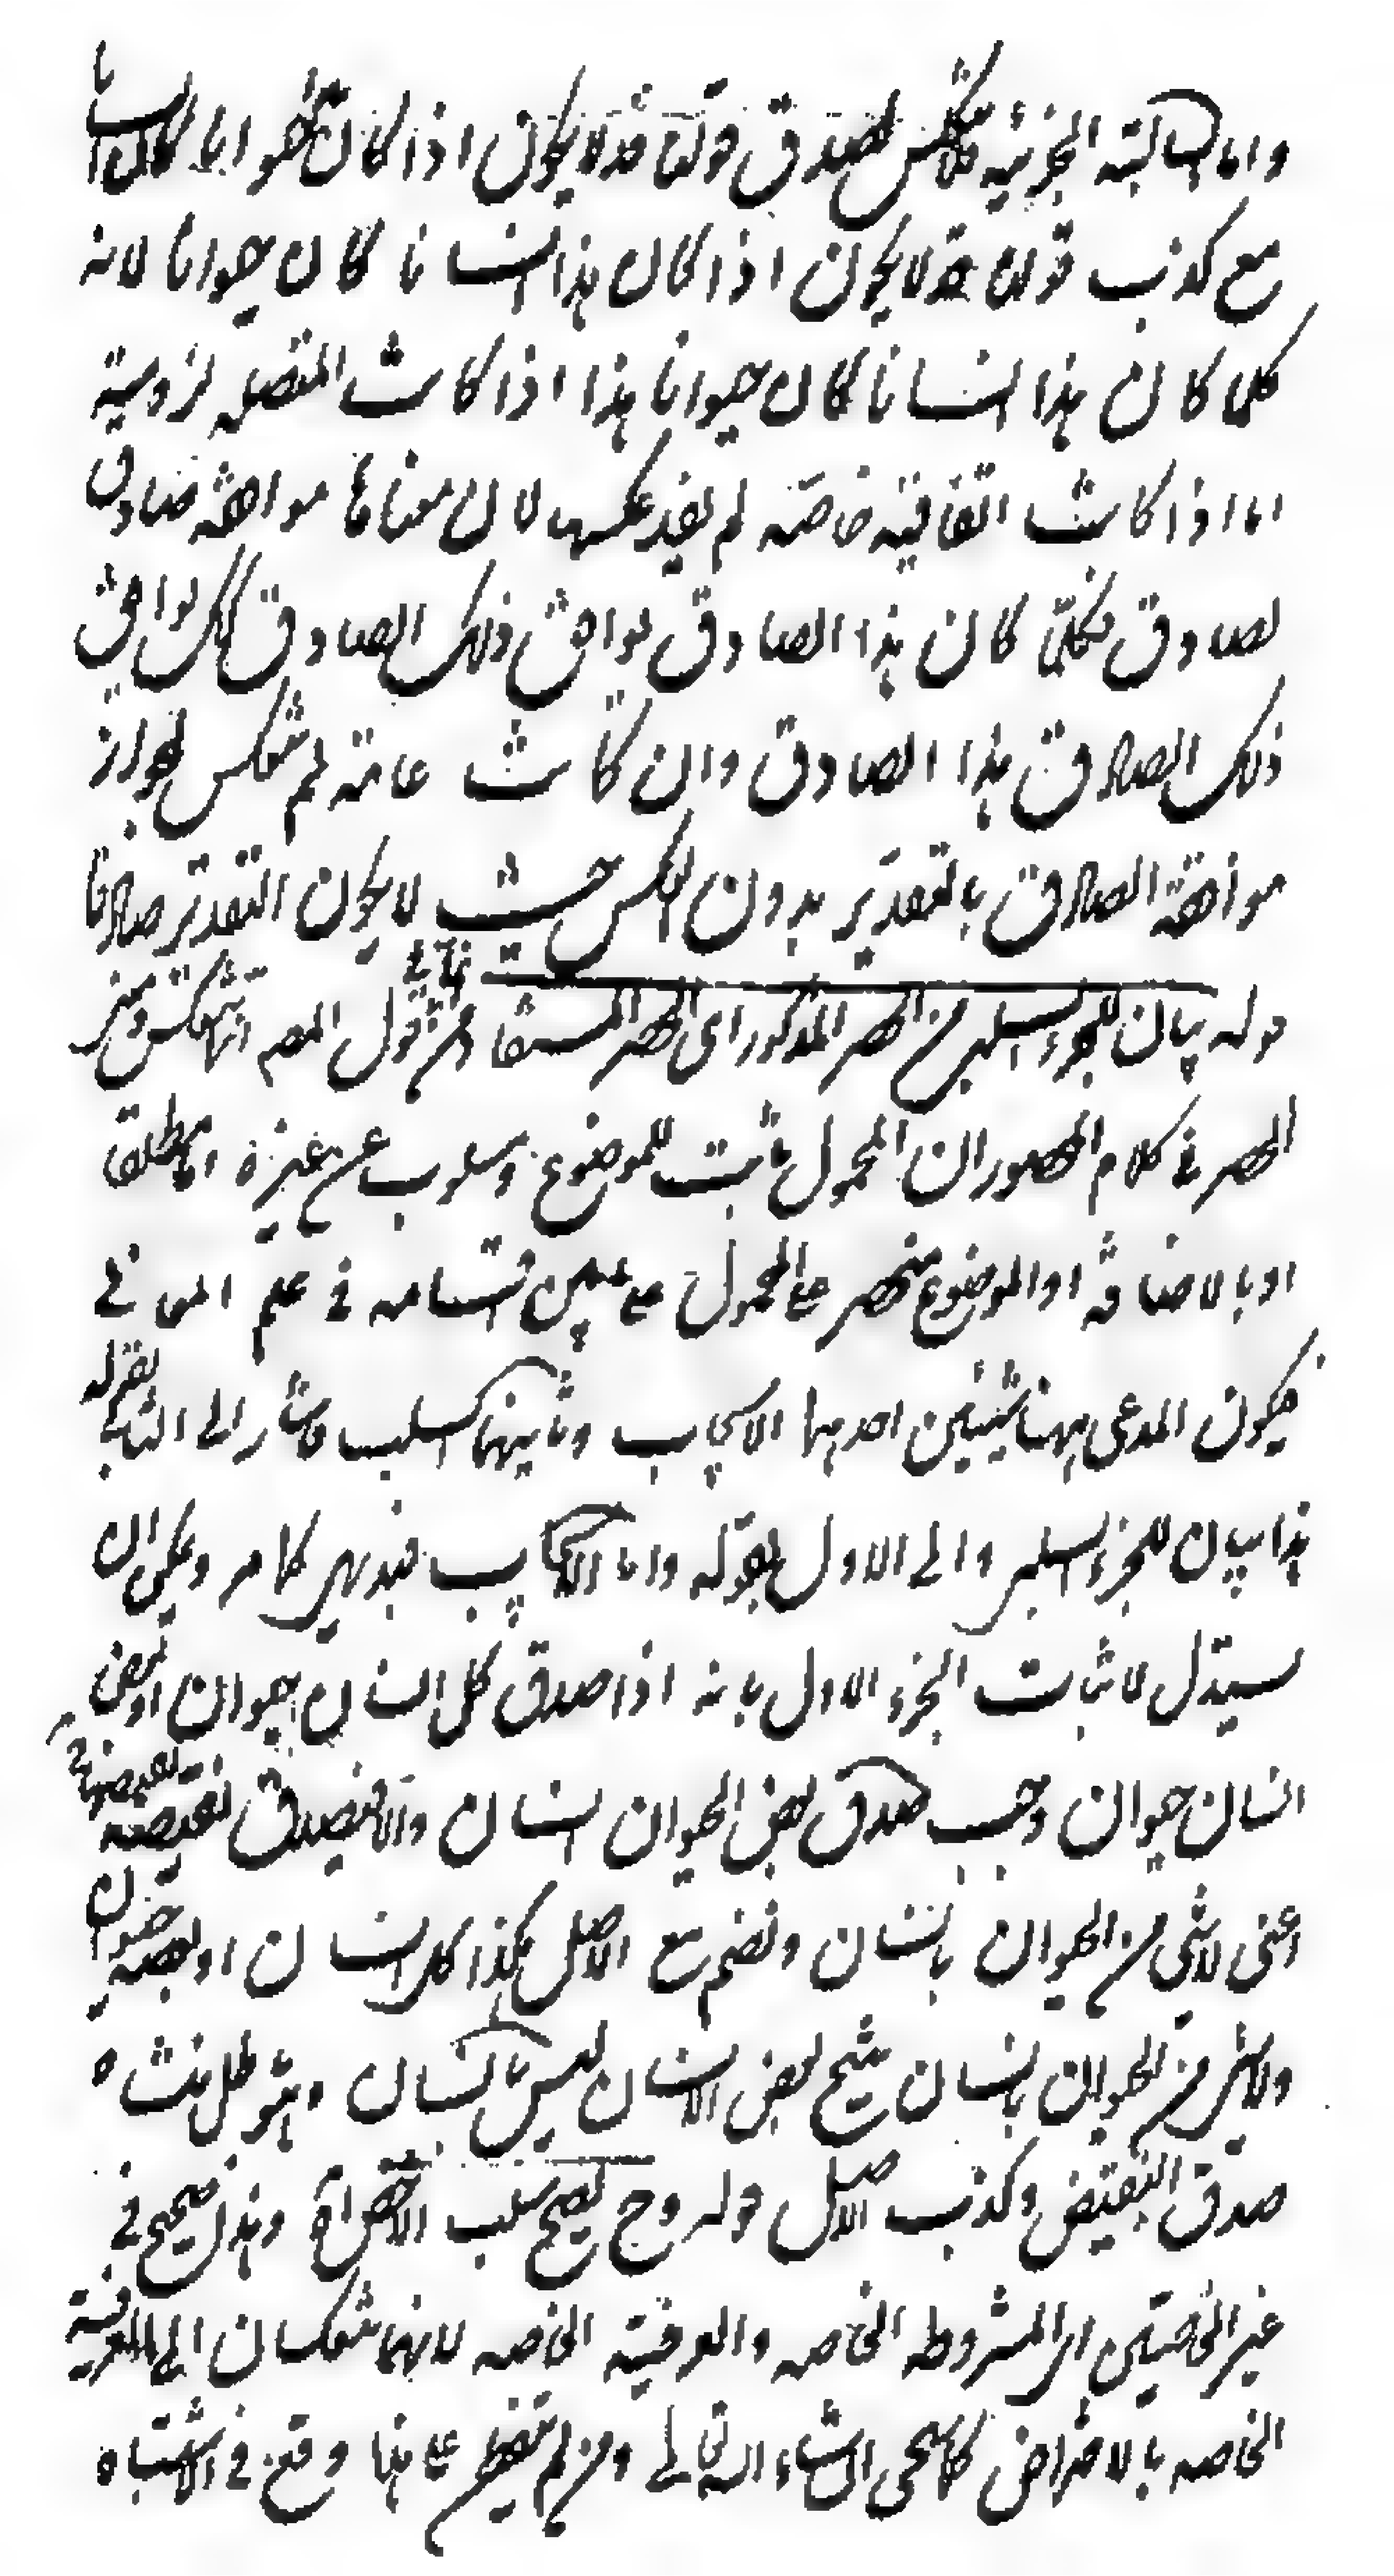 واما السالبة الجزئية فلا تنعكس لصدق قولنا قد لا يكون اذا كان هذا حيوانا كان انسانا
مع كذب قولنا قد لا يكون اذا كان هذا انسانا كان حيوانا لانه
كلما كان هذا انسانا كان حيوانا هذا اذا كانت المتصلة لزومية
اما اذا كانت اتفاقية خاصة لم يفد عكسها لان معناها موافقة صادق
لصادق فكلما كان هذا الصادق يوافق ذلك الصادق كك يوافق
ذلك الصادق هذا الصادق وان كانت عامة لم تنعكس لجواز
موافقة الصادق بالتقدير بدون العكس حيث لا يكون التقدير صادقا
قوله بيان للجزء السلبى من الحصر المذكور اى الحصر المستفاد من قول المصه انما تنعكس ومعنى
الحصر فى كلام الحصور ان المحمول ثابت للموضوع ومسلوب عن غيره اما مطلقا
او بالاضافة او الموضوع منحصر على المحمول على فى علم المعانى
فيكون المدعى ههنا شيئين احدهما الايجاب وثانيهما السلب فاشار الى الثانى بقوله
هذا بيان للجزء السلبى والى الاول بقوله واما الايجاب فبديهى كما مر ويمكن ان
يستدل لاثبات الجزء الاول بانه اذا صدق كل انسان حيوان او بعض
انسان حيوان وجب صدق بعض الحيوان انسان والا فيصدق نقيضه
اعنى لا شئ من الحيوان بانسان ونضم مع الاصل هكذا كل انسان او بعضه حيوان
ولا شئ من الحيوان بانسان ينتج بعض الانسان ليس بانسان وهو باطل منشاه
صدق النقيض وكذب الاصل قوله وح يصح سلب الاخص اه وهذا صحيح فى
غير الخاصتين اى المشروطة الخاصه والعرفية الخاصه لانهما تنعكسان الى العرفية
الخاصه بالافتراض كما سيجى انشاء الله تعالى ومن لم يتفطن على هذا وقع فى الاشتباه